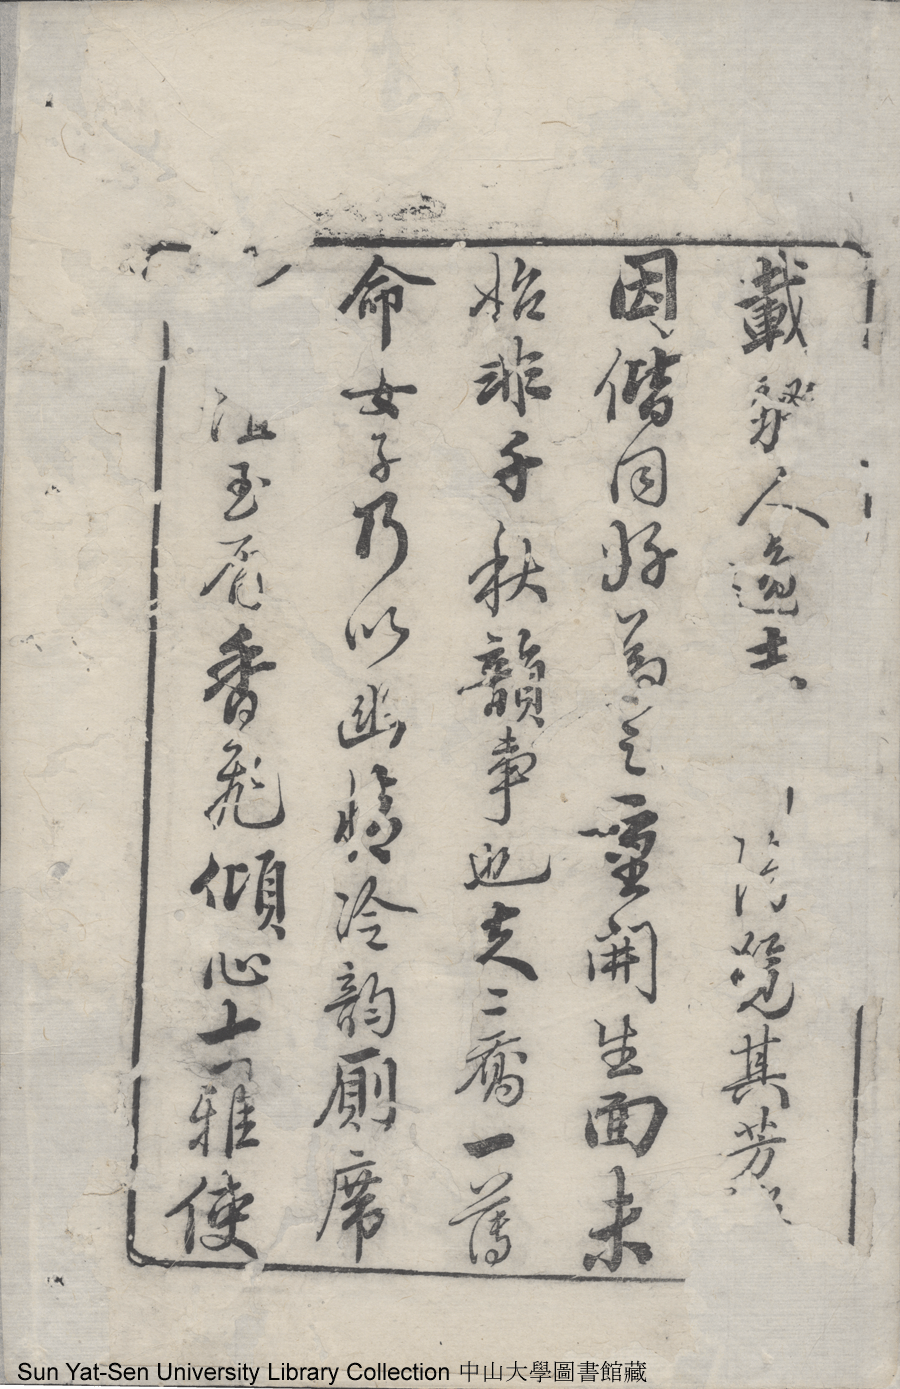 載 人逸士 覽其芳
因偕同好為之重開生面未
始非千秋韻事也夫二喬一薄
命女子乃以幽情冷韵廁席
玉 香 傾心士雅使
Sun Yat-Sen University Library Collection 中山大學圖書館藏